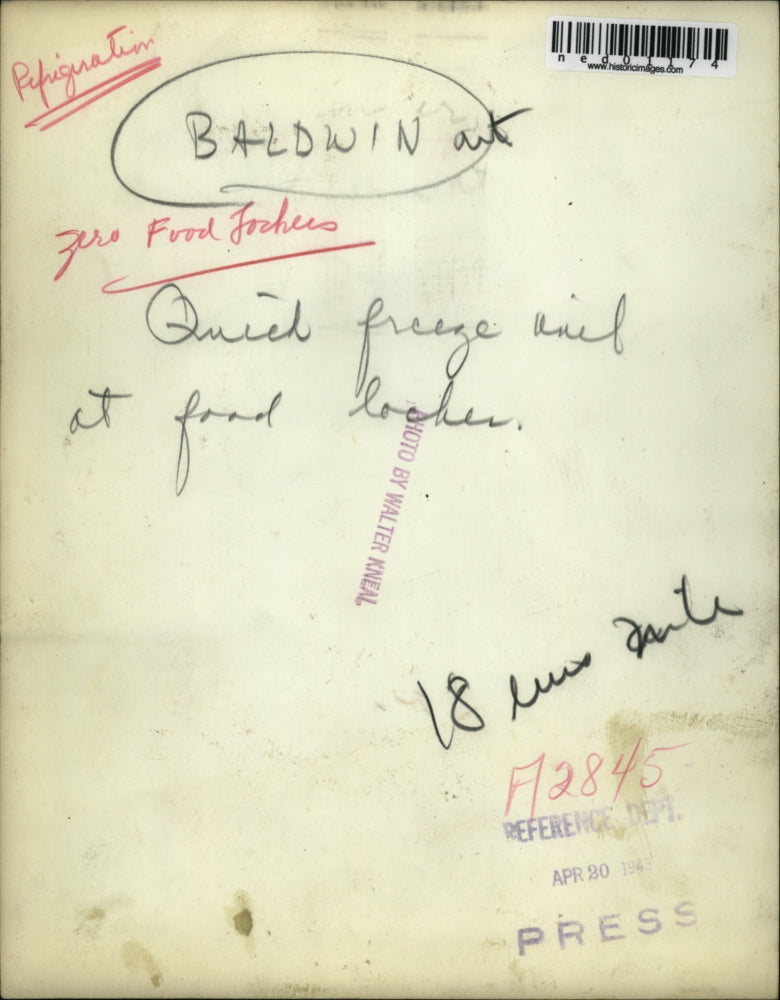 Refrigeration
ned01174
www.historicimages.com
BALDWIN art
Zero Food Lockers
Quick freeze unit
at food locker.
PHOTO BY WALTER KNEAL
18 ems
A2845
REFERENCE DEPT.
APR 20 1943
PRESS